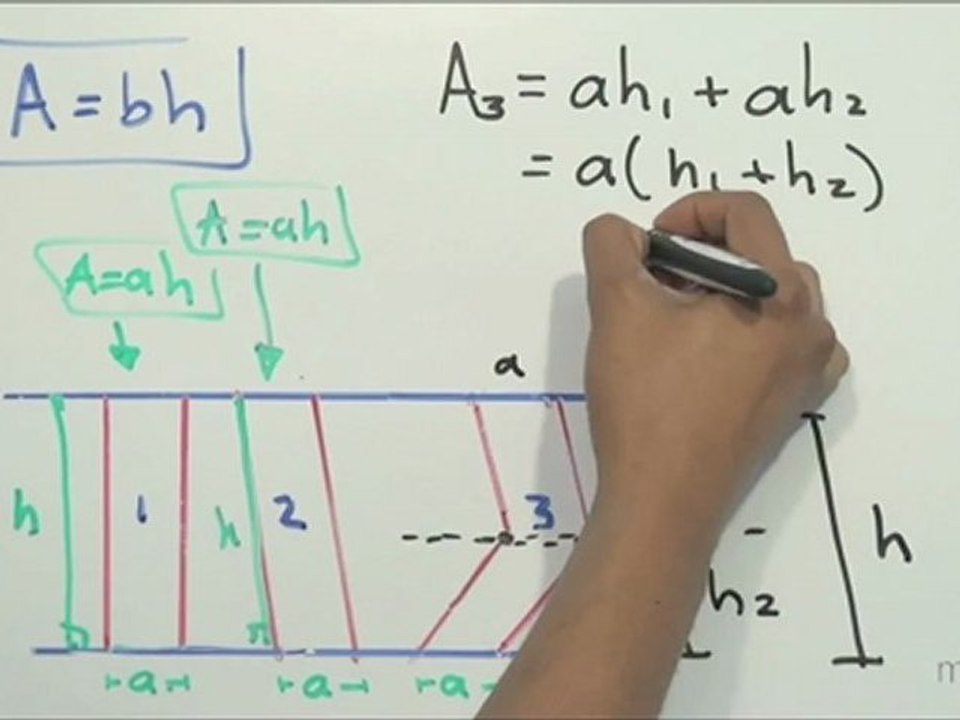 A = bh
A₃ = ah₁ + ah₂
= a(h₁ + h₂)
A = ah
A = ah
a
h
1
h
2
3
h
h₂
a
a
a
m